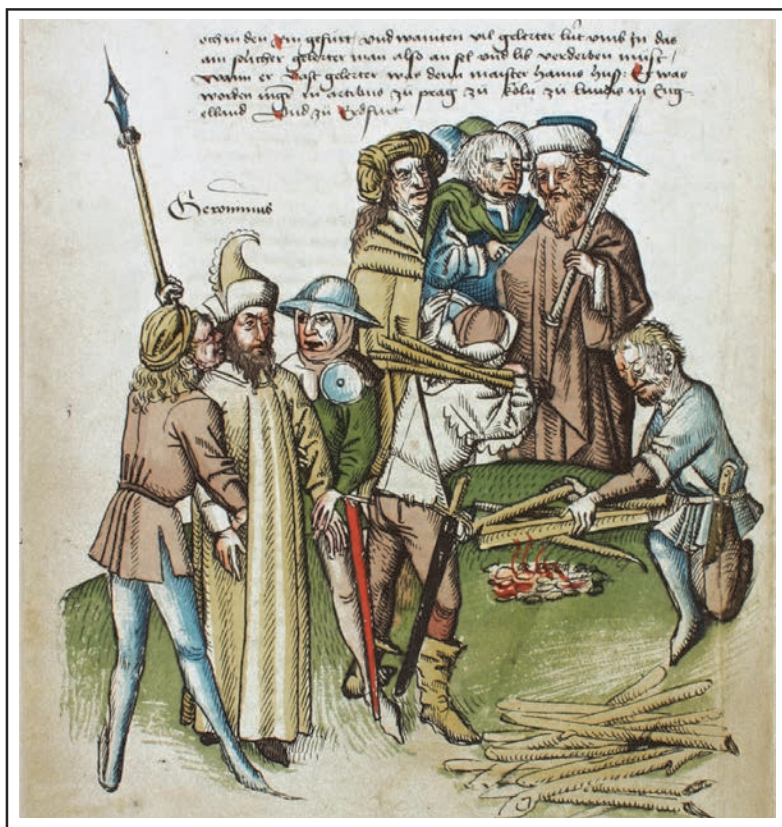 och in den Rin gefürt / und wainten vil gelerter lüt umb in das
ain solicher gelerter man also an sel und lib verderben müst /
wann er vast gelerter was denn maister hanns huß: Er was
worden in artibus zu prag zu köln zu lundis in Eng-
elland Und zu Erdfurt
Geronimus